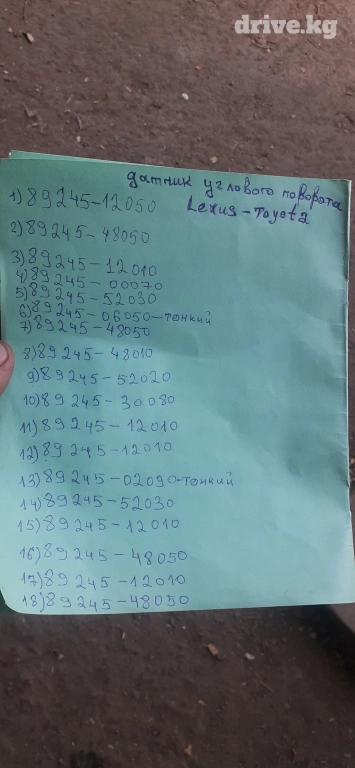 drive.kg
датчик углового поворота
Lexus-Toyota
1) 89245-12050
2) 89245-48050
3) 89245-12010
4) 89245-00070
5) 89245-52030
6) 89245-06050-тонкий
7) 89245-48050
8) 89245-48010
9) 89245-52020
10) 89245-30080
11) 89245-12010
12) 89245-12010
13) 89245-02090-тонкий
14) 89245-52030
15) 89245-12010
16) 89245-48050
17) 89245-12010
18) 89245-48050